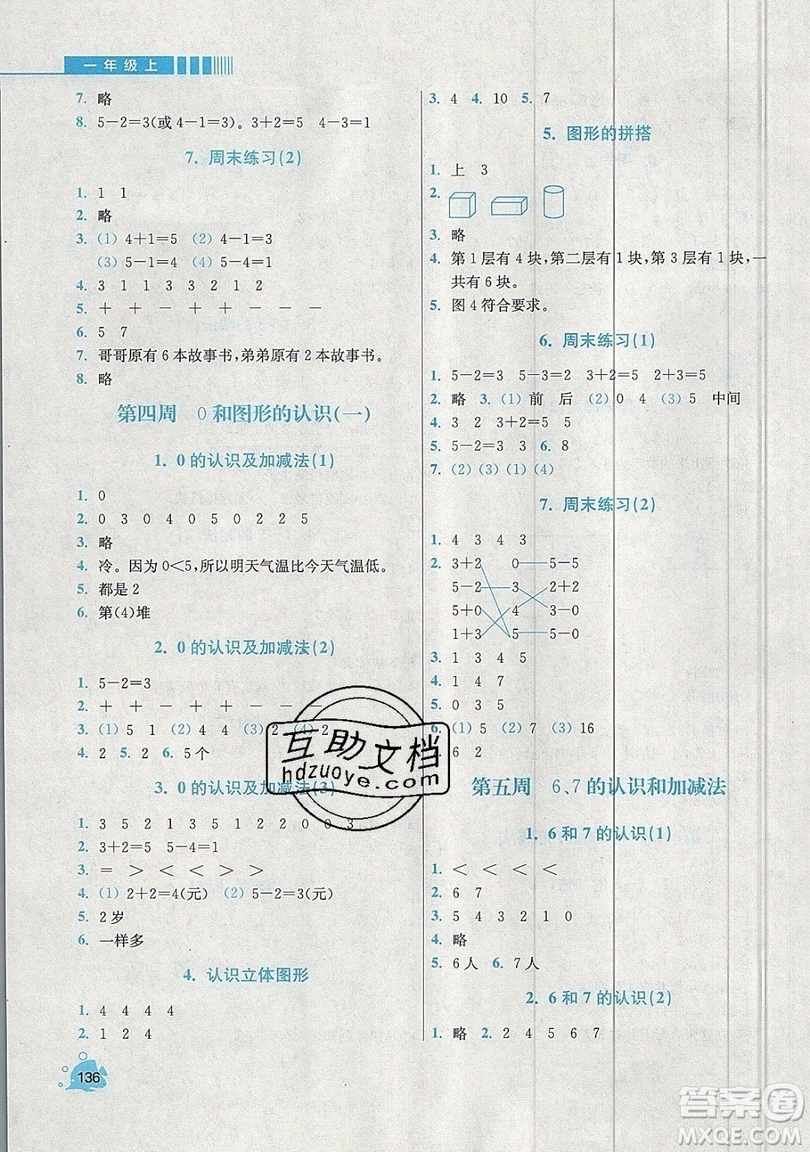 一年级上
7. 略
8. 5－2＝3(或 4－1＝3)。3＋2＝5　4－3＝1
7. 周末练习(2)
1. 1　1
2. 略
3. (1) 4＋1＝5　(2) 4－1＝3
(3) 5－1＝4　(4) 5－4＝1
4. 3　1　1　3　3　2　1　2
5. ＋　＋　－　＋　－　＋　－　－
6. 5　7
7. 哥哥原有 6 本故事书，弟弟原有 2 本故事书。
8. 略
第四周　0 和图形的认识(一)
1. 0 的认识及加减法(1)
1. 0
2. 0　3　0　4　0　5　0　2　2　5
3. 略
4. 冷。因为 0＜5，所以明天气温比今天气温低。
5. 都是 2
6. 第(4)堆
2. 0 的认识及加减法(2)
1. 5－2＝3
2. ＋　＋　－　＋　－　－　－
3. (1) 5　1　(2) 4　4　(3) 2　(4) 2
4. 2　5. 2　6. 5个
3. 0 的认识及加减法(3)
1. 3　5　2　1　3　5　1　2　2　0　0　3
2. 3＋2＝5　5－4＝1
3. ＝　＞　＜　＜　＞　＞
4. (1) 2＋2＝4(元)　(2) 5－2＝3(元)
5. 2岁
6. 一样多
4. 认识立体图形
1. 4　4　4　4
2. 1　2　4
136
3. 4　4. 10　5. 7
5. 图形的拼搭
1. 上　3
2.
3. 略
4. 第 1 层有 4 块，第二层有 1 块，第 3 层有 1 块，一
共有 6 块。
5. 图 4 符合要求。
6. 周末练习(1)
1. 5－2＝3　5－3＝2　3＋2＝5　2＋3＝5
2. 略　3. (1) 前　后　(2) 0　4　(3) 5　中间
4. 3　2　3＋2＝5
5. 5－3＝2　3＋2＝5　6. 8
7. (2)(3)(1)(4)
7. 周末练习(2)
1. 4　3　4　3
2. 3＋2　0　5－5
5－2　3　2＋2
5＋0　4　3－0
1＋3　5　5－0
3. 1　3　4　5
4. 1　4　7
5. 0　3　5
6. (1) 5　(2) 7　(3) 16
6　2
第五周　6、7 的认识和加减法
1. 6 和 7 的认识(1)
1. ＜　＜　＜　＜　＜
2. 6　7
3. 5　4　3　2　1　0
4. 略
5. 6人　6. 7人
2. 6 和 7 的认识(2)
1. 略　2. 2　4　5　6　7
互助文档
hdzuoye.com
答案圈
MXQE.COM